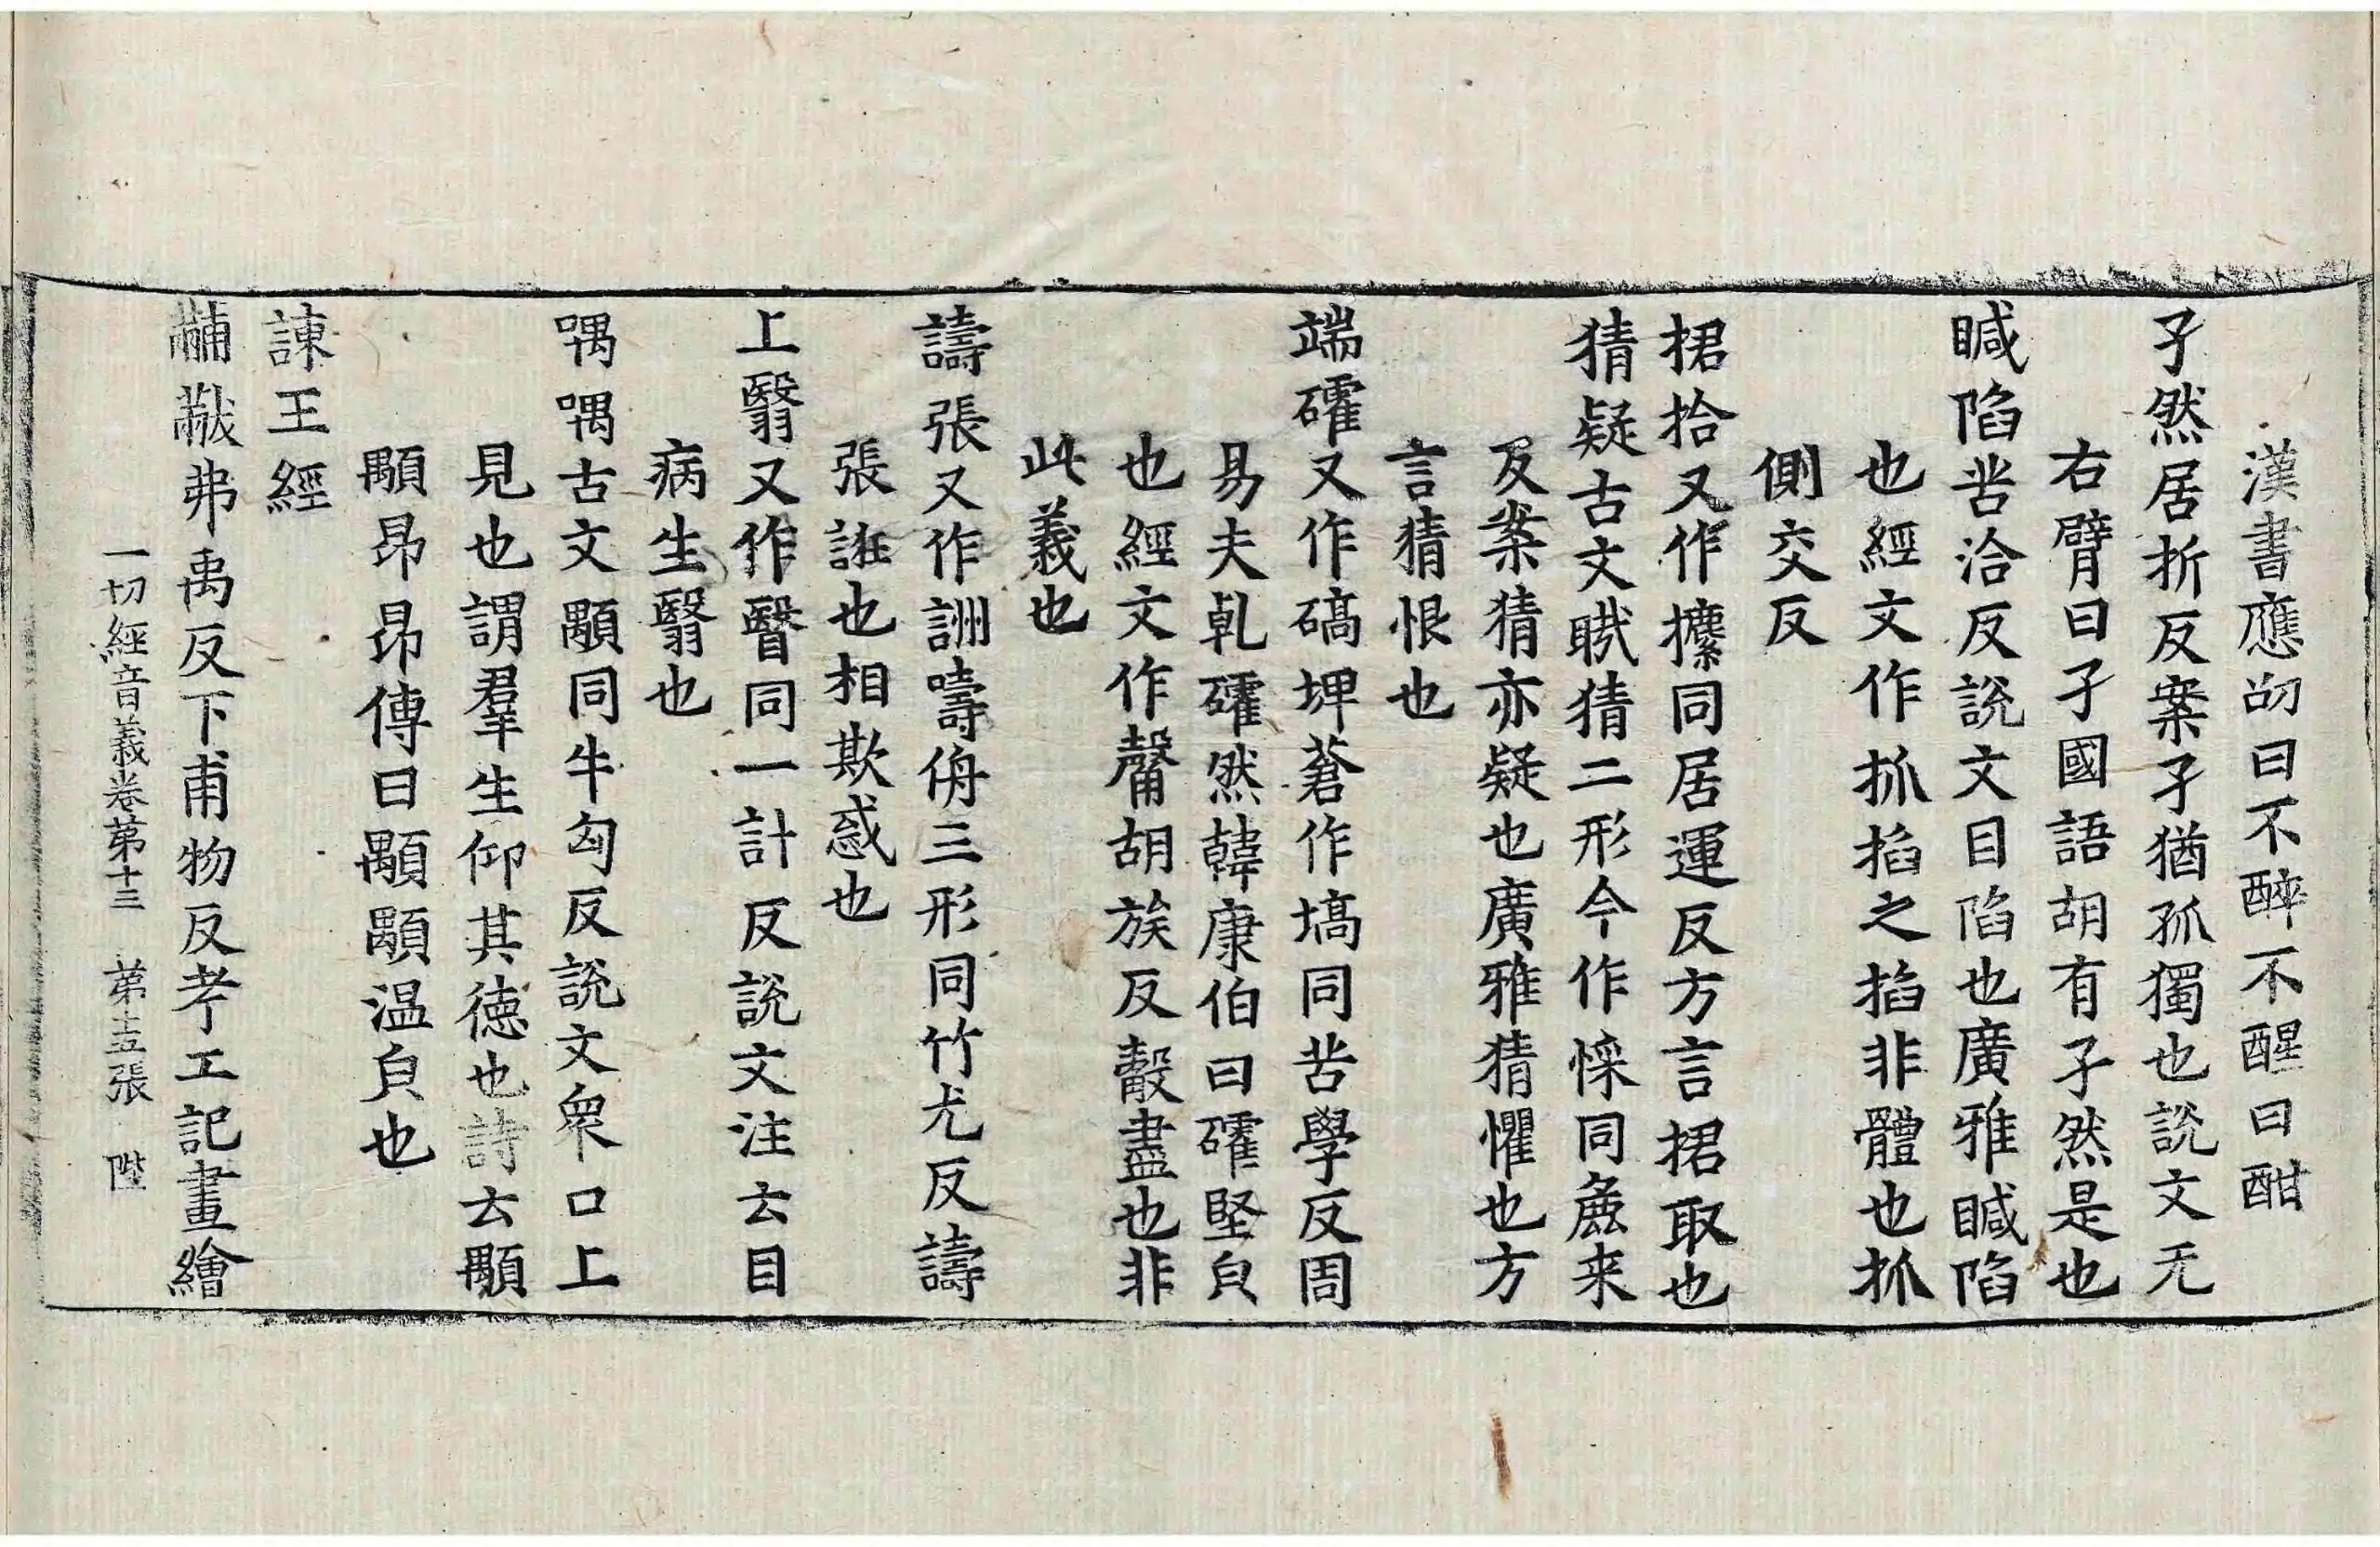 漢書應劭曰不醉不醒曰酣
孑然居折反案孑猶孤獨也說文无
右臂曰孑國語胡有孑然是也
瞴陷苦洽反說文目陷也廣雅瞴陷
也經文作抓掐之掐非體也抓
側交反
捃拾又作攗同居運反方言捃取也
猜疑古文䝳猜二形今作悇同麁来
反案猜亦疑也廣雅猜懼也方
言猜恨也
端礭又作碻埤蒼作塙同苦學反周
易夫乹礭然韓康伯曰礭堅皃
也經文作㱿胡族反㲉盡也非
此義也
譸張又作詶嚋侜三形同竹尤反譸
張誑也相欺惑也
上翳又作瞖同一計反說文注云目
病生翳也
喁喁古文顒同牛匈反說文衆口上
見也謂羣生仰其徳也詩云顒
顒昂昂傳曰顒顒温皃也
諫王經
黼黻弗禹反下甫物反考工記畫繪
一切經音義卷第十三　第十五張　陛